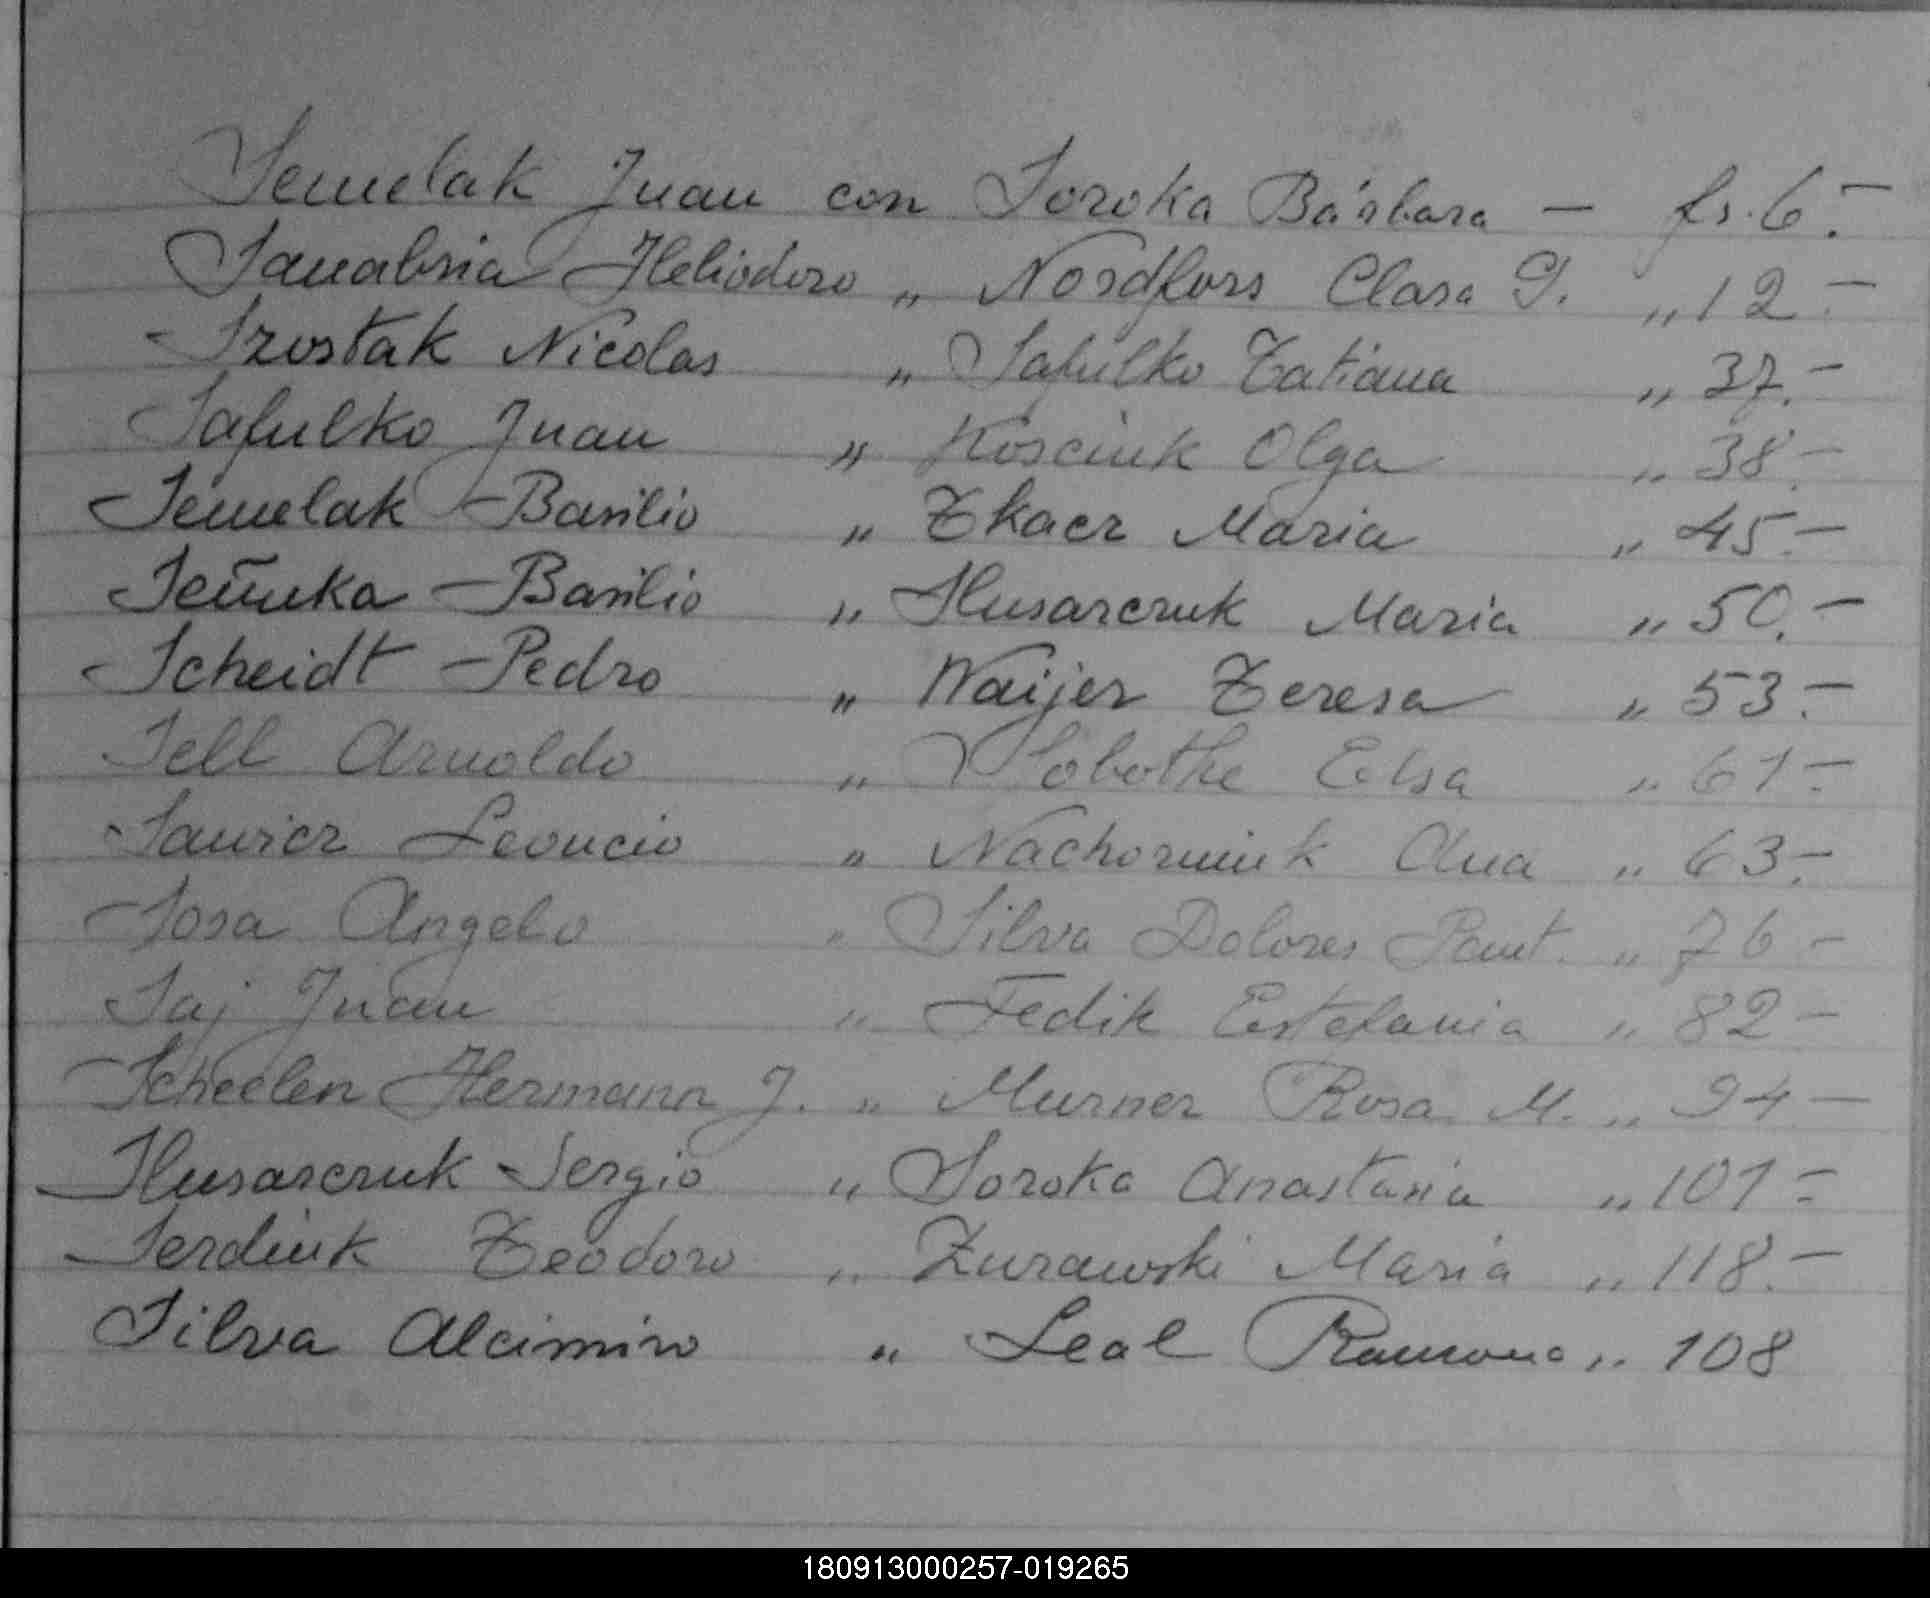 Semelak Juan con Soroka Bárbara — fs. 6.—
Sanabria Heliodoro „ Nordfors Clara G. „ 12.—
Szostak Nicolas „ Safulko Tatiana „ 37.—
Safulko Juan „ Kosciuk Olga „ 38.—
Semelak Basilio „ Tkacz Maria „ 45.—
Basilio „ Husarczuk Maria „ 50.—
Scheidt Pedro „ Waijer Teresa „ 53.—
Sell Arnoldo „ Elsa „ 61.—
Sawicz Leoncio „ Nachorniuk Ana „ 63.—
Sosa Angelo „ Silva Dolores Pant. „ 76.—
Saj Juan „ Fedik Estefania „ 82—
Scheelen Hermann J. „ Murner Rosa M. „ 94—
Husarczuk Sergio „ Soroka Anastasia „ 101.—
Serdiuk Teodoro „ Zurawski Maria „ 118.—
Silva Alcimiro „ Leal Ramona „ 108
180913000257-019265